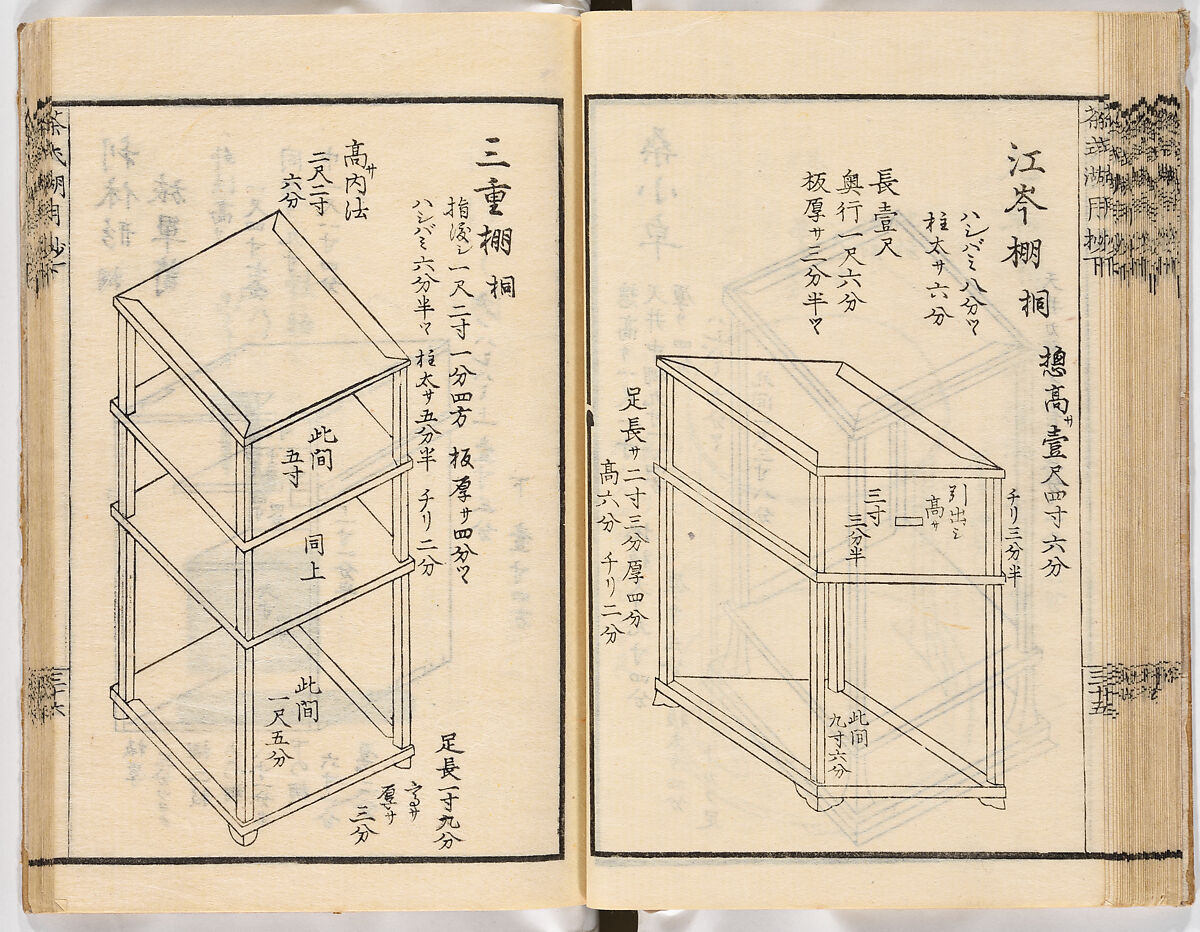 江岑棚 桐
摠高サ壹尺四寸六分
ハシバミ八分ツヽ
柱太サ六分
長壹尺
奥行一尺六分
板厚サ三分半ツヽ
チリ三分半
引出シ
高サ
三寸
三分半
此間
九寸六分
足長サ二寸三分厚四分
高六分 チリ二分
茶式湖月抄下
三十五
三重棚 桐
指渡シ一尺二寸一分四方 板厚サ四分ツヽ
ハシバミ六分半ツヽ 柱太サ五分半 チリ二分
高サ内法
二尺二寸
六分
此間
五寸
同上
此間
一尺五分
足長一寸九分
高サ
厚サ
三分
茶式湖月抄下
三十六